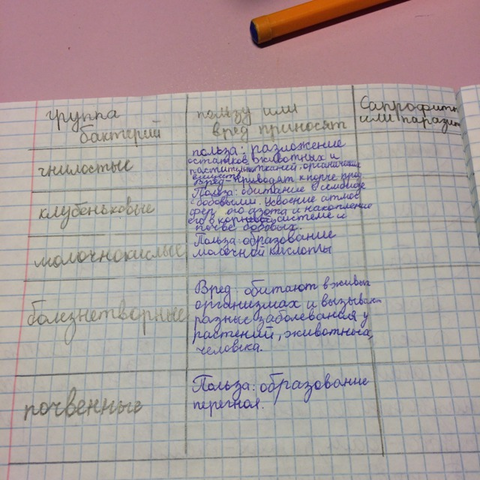 группа
бактерий
пользу или
вред приносят
Сапрофиты
или паразит
гнилостые
польза: разложение
останков животных и
растит. тканей, органичих
веществ
Вред: приводят к порче про
клубеньковые
Польза: обитание в симбиозе
с бобовыми. Усвоение атмос
фер ого азота и накопление
его в корневой системе и
почве бобовых.
молочнокислые
Польза: образование
молочной кислоты
болизнетворные
Вред обитают в живых
организмах и вызывая
разные заболевания у
растений, животных,
человека.
почвенные
Польза: образование
перегноя.